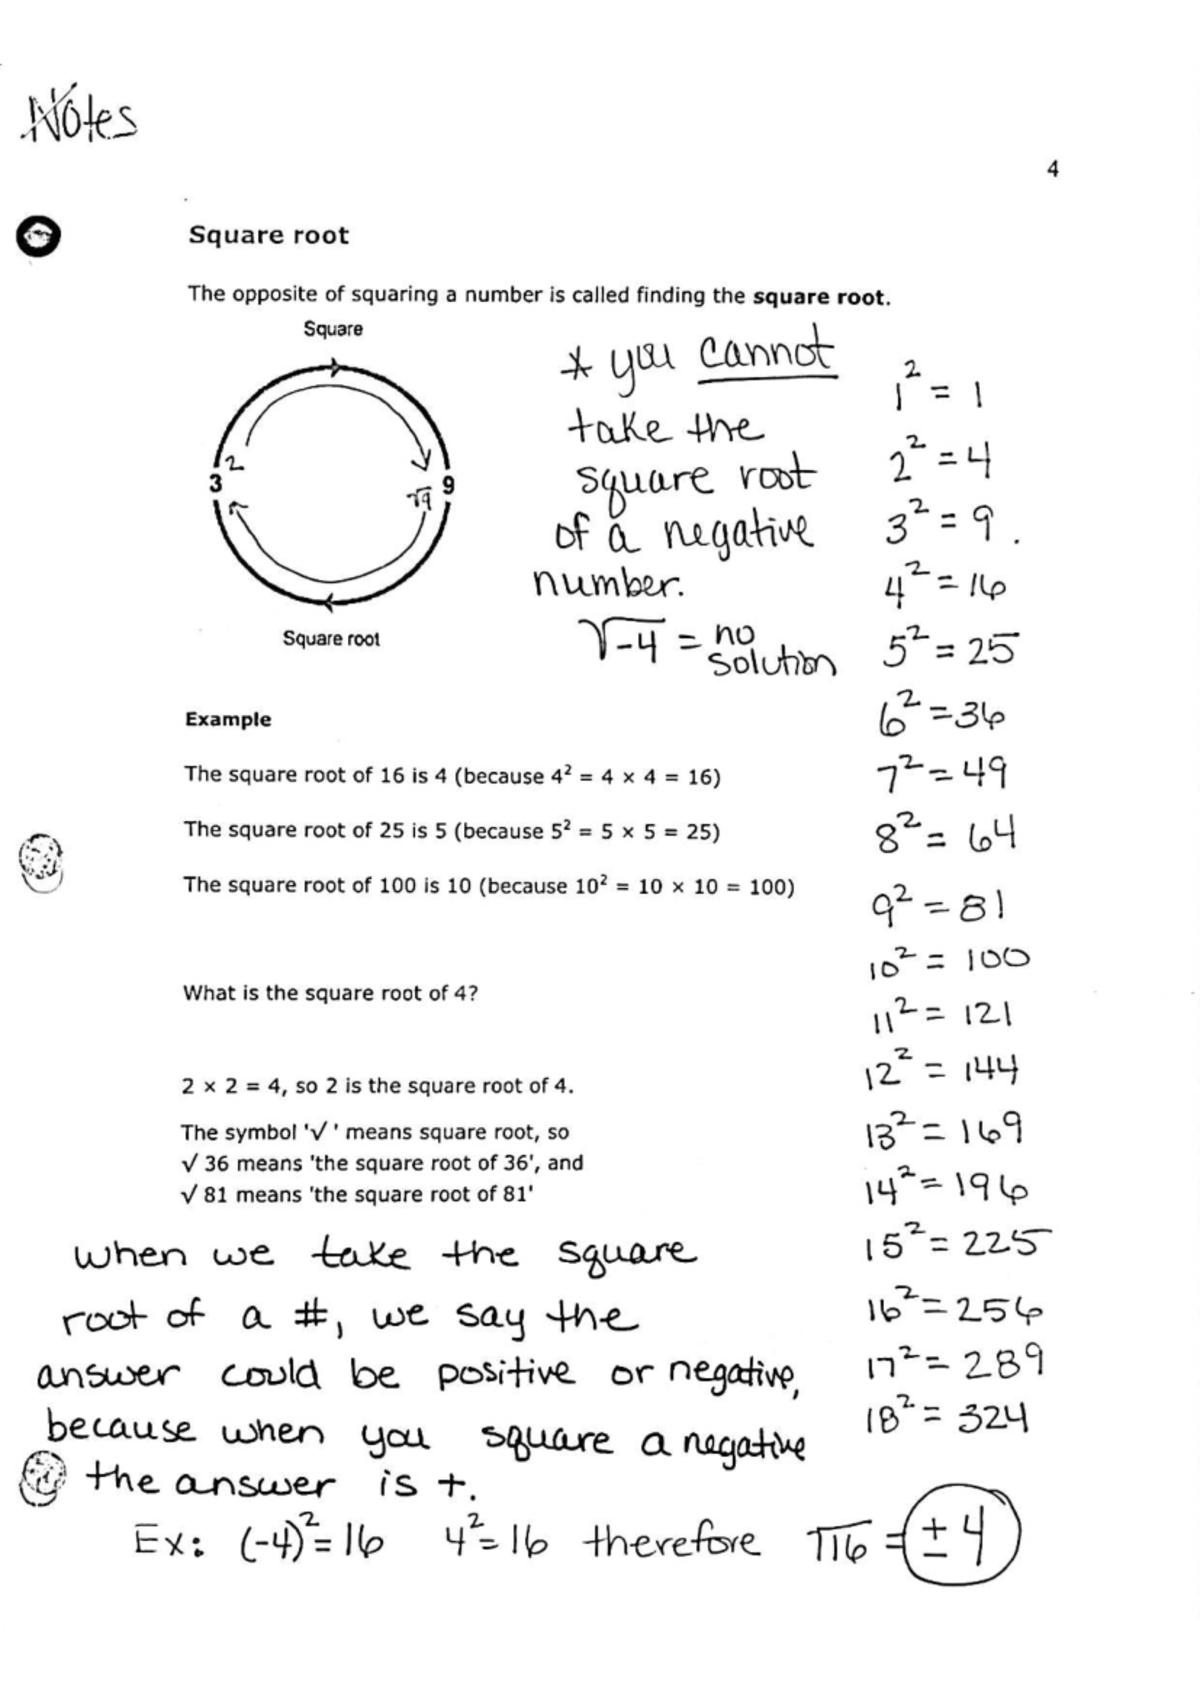 Notes
4
Square root
The opposite of squaring a number is called finding the square root.
Square
2
3
√9 9
Square root
* you cannot
take the
square root
of a negative
number.
√-4 = no
solution
1² = 1
2² = 4
3² = 9.
4² = 16
5² = 25
6² = 36
7² = 49
8² = 64
9² = 81
10² = 100
11² = 121
12² = 144
13² = 169
14² = 196
15² = 225
16² = 256
17² = 289
18² = 324
Example
The square root of 16 is 4 (because 4² = 4 × 4 = 16)
The square root of 25 is 5 (because 5² = 5 × 5 = 25)
The square root of 100 is 10 (because 10² = 10 × 10 = 100)
What is the square root of 4?
2 × 2 = 4, so 2 is the square root of 4.
The symbol '√ ' means square root, so
√ 36 means 'the square root of 36', and
√ 81 means 'the square root of 81'
when we take the square
root of a #, we say the
answer could be positive or negative,
because when you square a negative
the answer is +.
Ex: (-4)² = 16 4² = 16 therefore √16 = ± 4